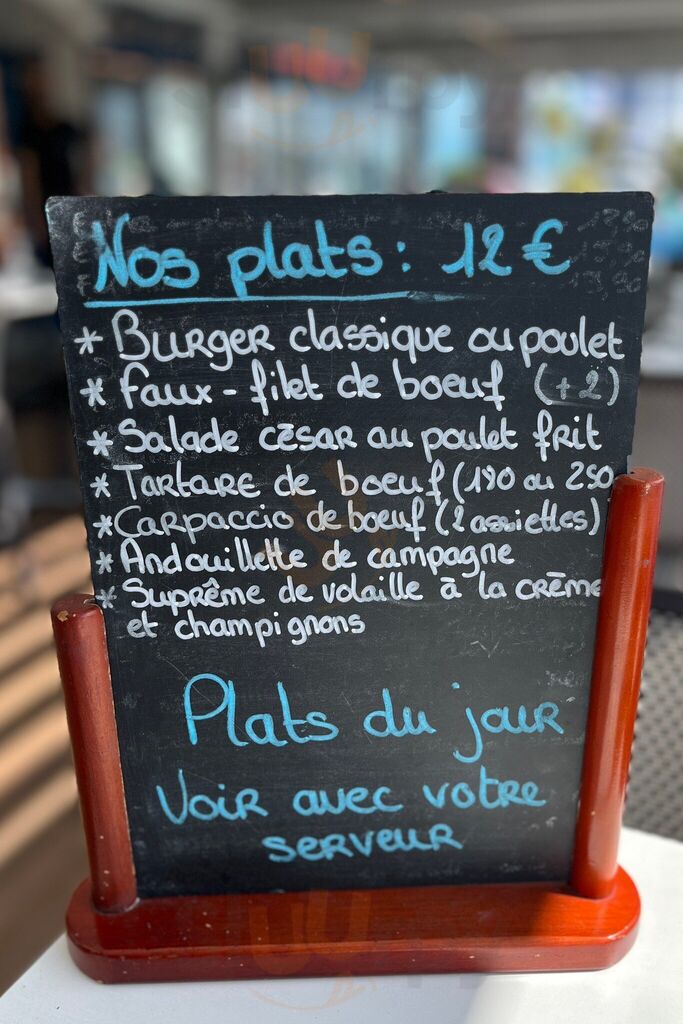 Nos plats : 12 €
* Burger classique ou poulet
* faux-filet de boeuf (+2)
* Salade césar au poulet frit
* Tartare de boeuf (190 ou 250
* Carpaccio de boeuf (2 assiettes)
* Andouillette de campagne
* Suprême de volaille à la crème
et champignons
Plats du jour
Voir avec votre
serveur